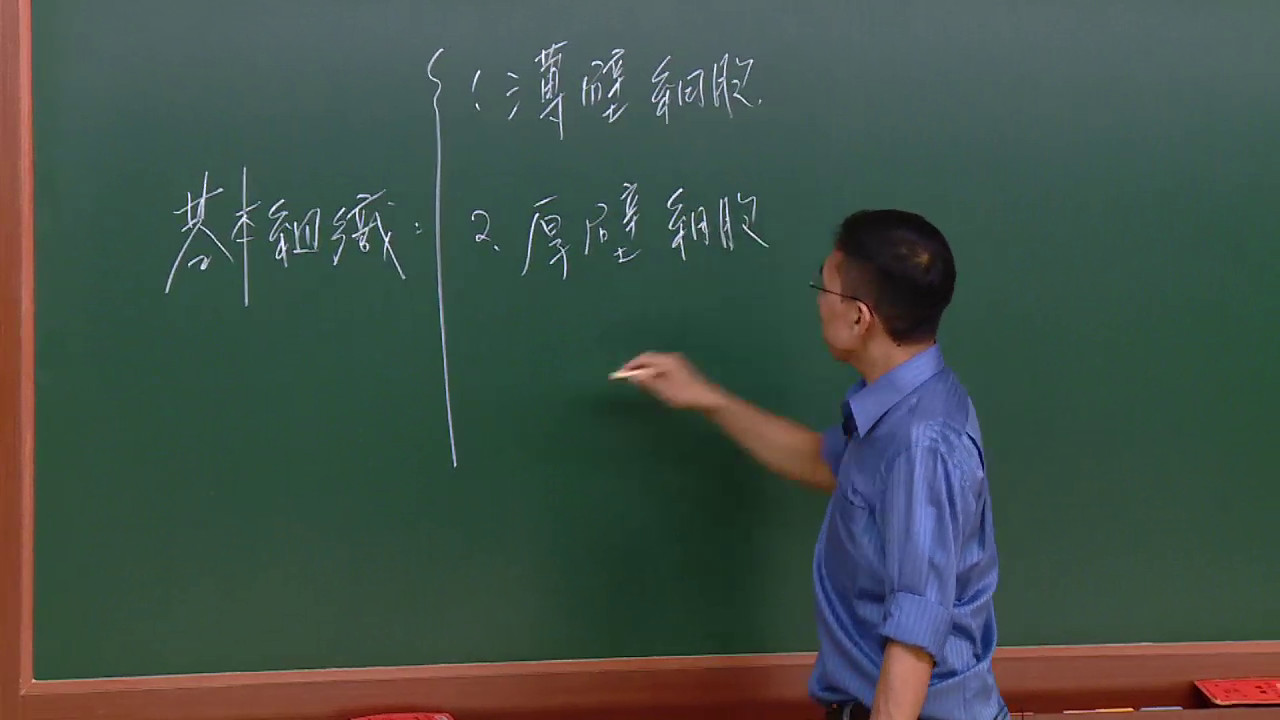 1. 薄壁細胞
基本組織:
2. 厚壁細胞